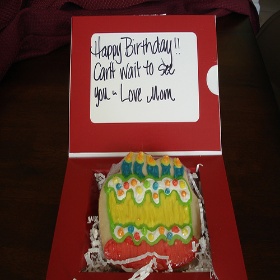 Happy Birthday!!
Can't wait to see
you - Love Mom